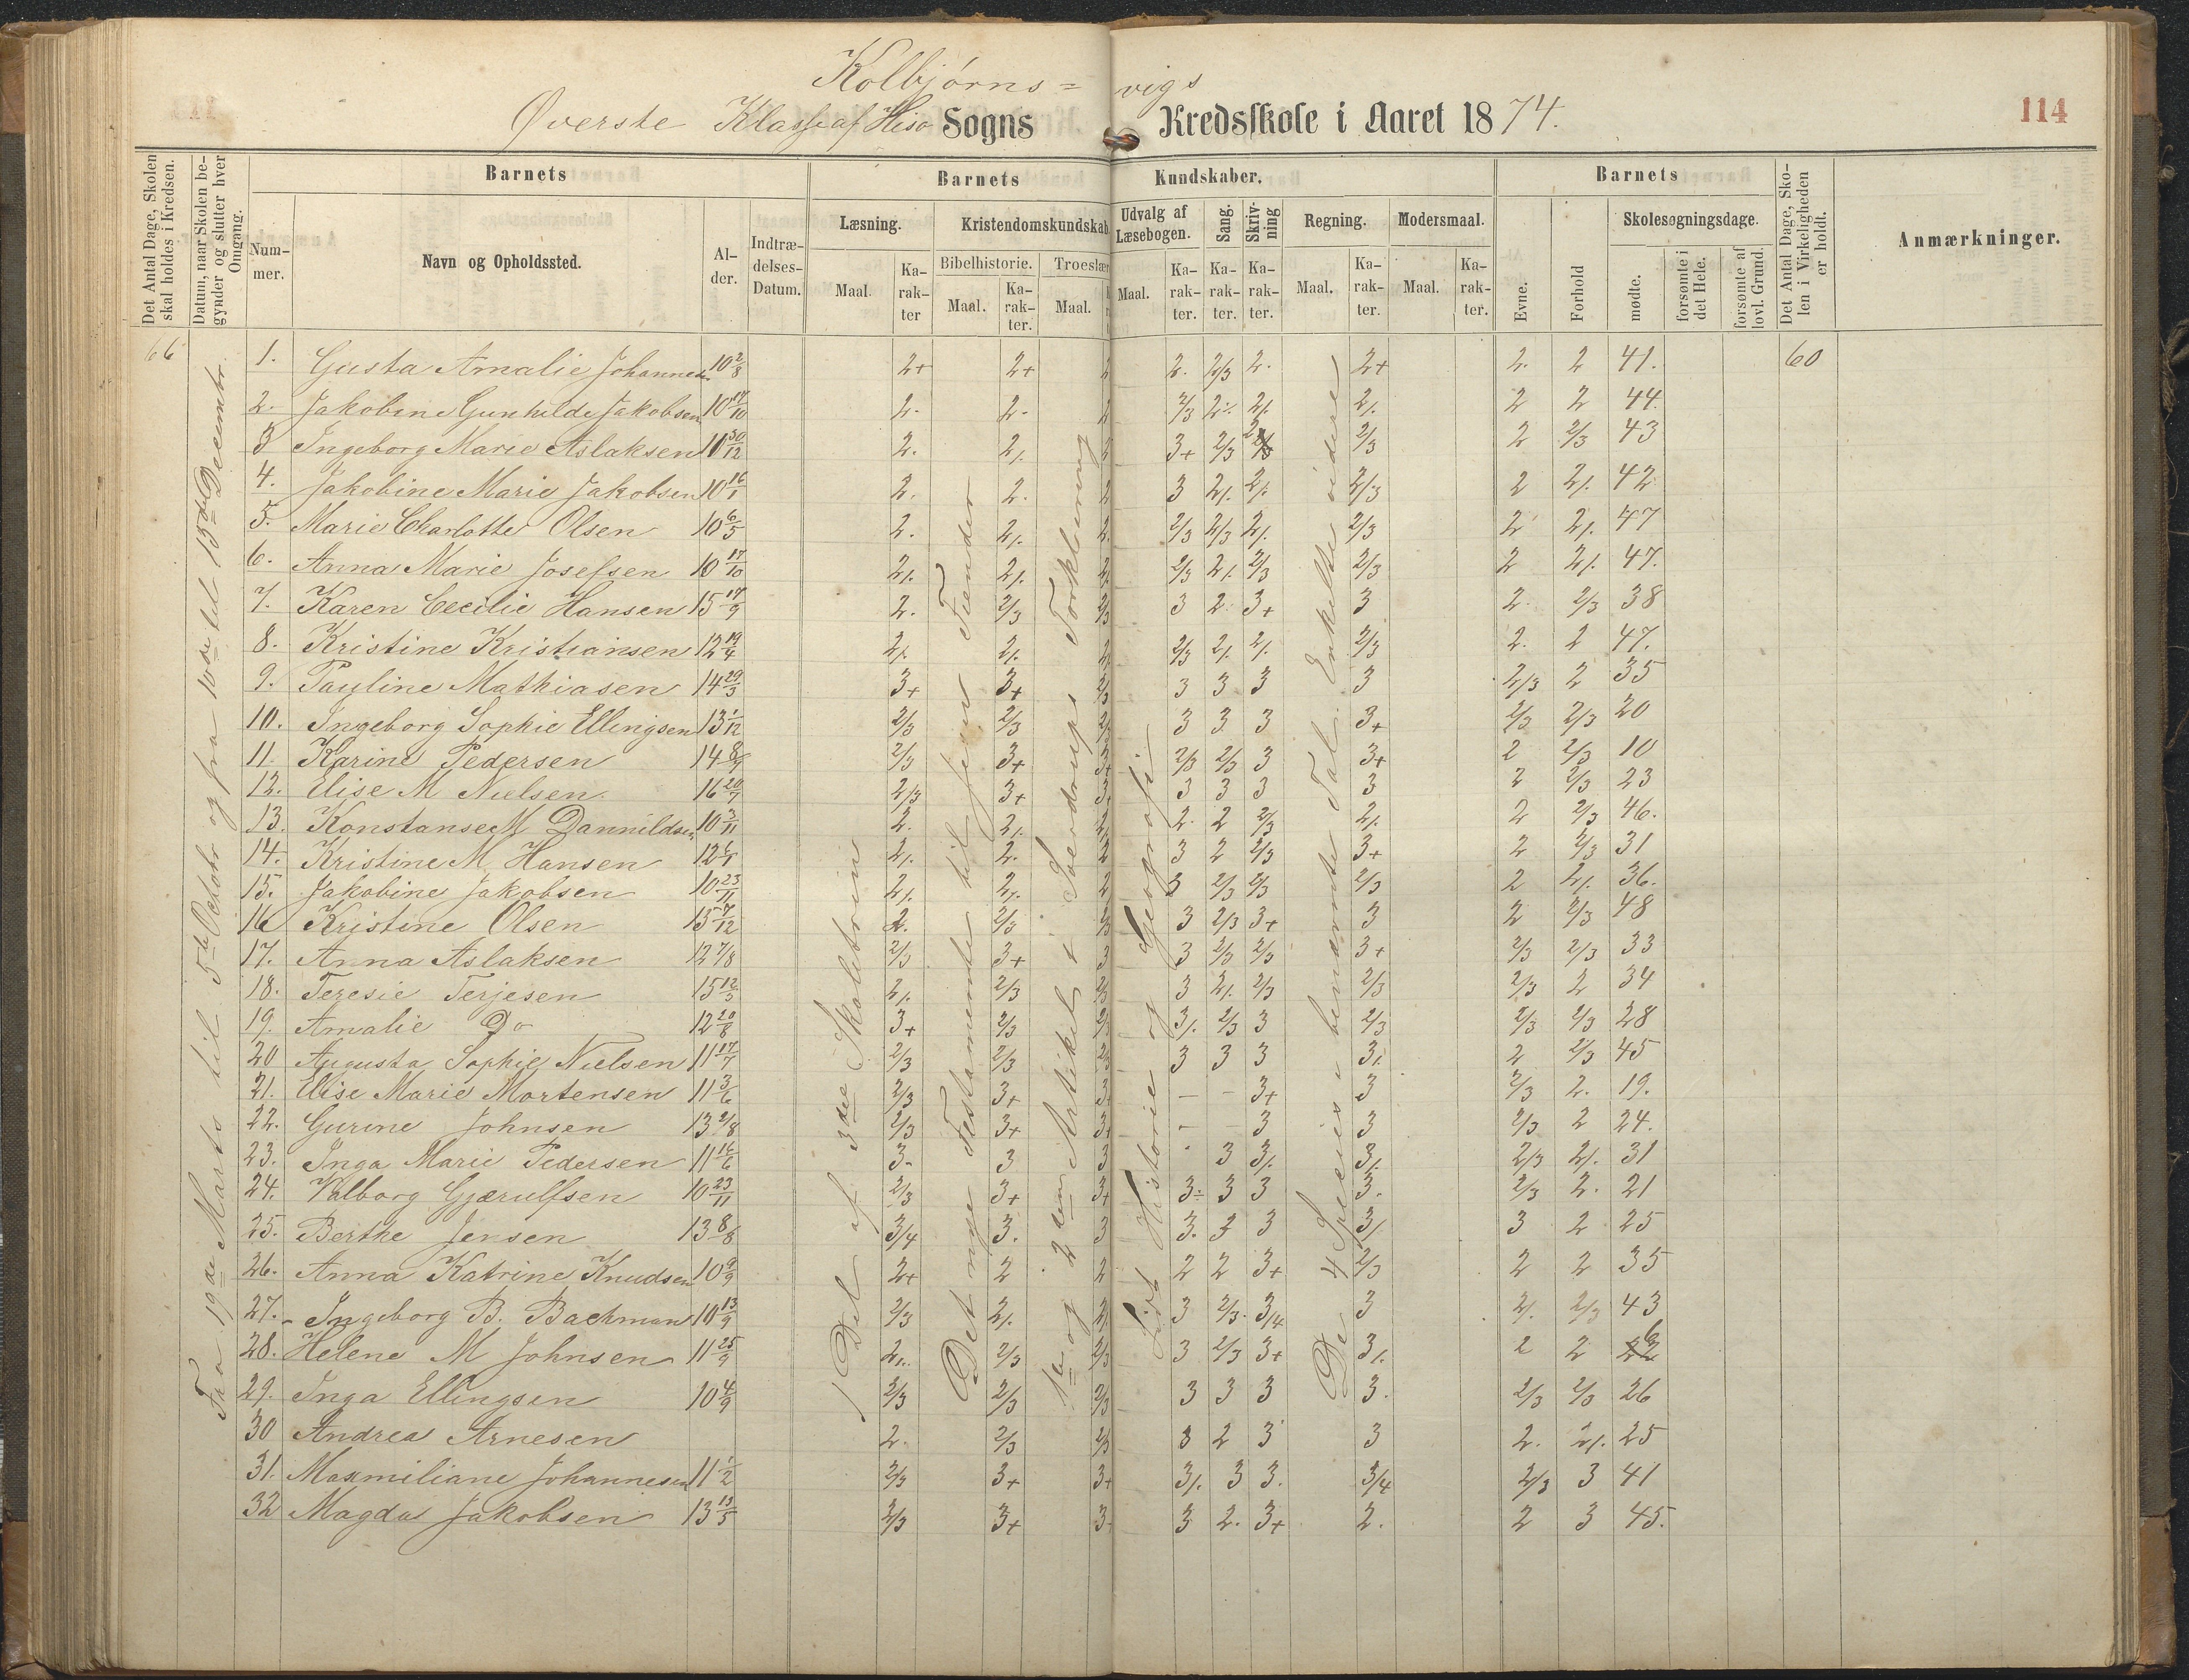 Kolbjørns= vigs
Øverste Klasse af Hisø Sogns Kredsskole i Aaret 1874.
114
Det Antal Dage, Skolen skal holdes i Kredsen.
Datum, naar Skolen begynder og slutter hver Omgang.
Barnets
Nummer.
Navn og Opholdssted.
Alder.
Indtrædelses-Datum.
Barnets Kundskaber.
Læsning.
Kristendomskundskab
Bibelhistorie.
Troeslær
Udvalg af Læsebogen.
Sang.
Skrivning
Regning.
Modersmaal.
Maal.
Karakter
Barnets
Evne.
Forhold
Skolesøgningsdage.
mødte.
forsømte i det Hele.
forsømte af lovl. Grund.
Det Antal Dage, Skolen i Virkeligheden er holdt.
Anmærkninger.
66
60
Fra 19de Marts til 5te Octobr og fra 10de til 15de Decembr.
1ste Del af 3die Skoletrin
Det nye Testamente til Jesu Fiender
1ste og 2den Artikel i Sverdrups Forklaring
Lidt Historie og Geografi
De 4 Species i benævnte Tal. Enkelte videre
1. Gusta Amalie Johannesen 10 2/8 2+ 2+ 2 2. 2/3 2. 2+ 2. 2 41.
2. Jakobine Gunhilde Jakobsen 10 17/10 2. 2. 2 2/3 2/. 2/. 2/. 2 2 44.
3 Ingeborg Marie Aslaksen 10 30/12 2. 2/. 2 3+ 2/3 2/3 2 2/3 43
4. Jakobine Marie Jakobsen 10 16/1 2. 2. 2 3 2/. 2/. 2/3 2 2/. 42
5. Marie Charlotte Olsen 10 6/5 2. 2/. 2. 2/3 2/3 2/. 2/3 2 2/. 47
6. Anna Marie Josefsen 10 17/10 2/. 2/. 2/. 2/3 2/. 2/3 2/3 2 2/. 47.
7. Karen Cecilie Hansen 15 17/9 2. 2/3 2/3 3 2. 3+ 3 2. 2/3 38
8. Kristine Kristiansen 12 19/4 2/. 2/. 2/. 2/3 2/. 2/. 2/3 2. 2 47.
9. Pauline Mathiasen 14 29/3 3+ 3+ 2/3 3 3 3 3 2/3 2 35
10. Ingeborg Sophie Ellingsen 13 1/12 2/3 2/3 2/3 3 3 3 3+ 2/3 2/3 20
11. Karine Pedersen 14 8/9 2/3 3+ 3+ 2/3 2/3 3 3+ 2 2/3 10
12. Elise M Nielsen 16 20/7 2/3 3+ 3. 3 3 3 3 2 2/3 23
13. Konstanse M Dannildsen 10 3/11 2. 2/. 2/. 2. 2 2/3 2/. 2 2/3 46.
14. Kristine M Hansen 12 6/1 2/. 2. 2 3 2 2/3 3+ 2 2/3 31
15. Jakobine Jakobsen 10 23/11 2/. 2/. 2 3 2/3 2/3 2/3 2 2/. 36.
16 Kristine Olsen 13 7/12 2. 2/3 2/3 3 2/3 3+ 3 2 2/3 48
17. Anna Aslaksen 12 7/8 2/3 3+ 3 3 2/3 2/3 3+ 2/3 2/3 33
18. Teresie Terjesen 15 12/3 2/. 2/3 2/3 3 2/. 2/3 2/3 2/3 2 34
19. Amalie Do 12 20/8 3+ 2/3 2/3 3/. 2/3 3 2/3 2/3 2/3 28
20 Augusta Sophie Nielsen 11 17/7 2/3 2/3 2/3 3 3 3 3/. 2 2/3 45
21. Elise Marie Mortensen 11 3/6 2/3 3+ 3+ - - 3+ 3 2/3 2. 19.
22. Gurine Johnsen 13 2/8 2/3 3+ 3+ - - 3 3 2/3 2 24.
23. Inga Marie Pedersen 11 16/6 3. 3 3 - 3 3/. 3/. 2/3 2/. 31
24. Valborg Gjærulfsen 10 23/11 2/3 3+ 3+ 3÷ 3 3 3. 2/3 2. 21
25. Berthe Jensen 13 8/8 3/4 3. 3 3. 3 3 3/. 3 2 25
26. Anna Katrine Knudsen 10 9/9 2+ 2 2 2 2 3+ 2/3 2 2 35
27. Ingeborg B. Backman 10 13/9 2/3 2/. 2/. 3 2/3 3/4 3 2/. 2/3 43
28. Helene M Johnsen 11 25/9 2/. 2/3 2/3 3 2/3 3+ 3/. 2 2
29. Inga Ellingsen 10 4/9 2/3 2/3 2/3 3 3 3 3. 2/3 2/3 26
30 Andrea Arnesen 2. 2/3 2/3 3 2 3 3 2. 2/. 25
31. Maxmiliane Johannesen 11 1/2 2/3 3+ 3+ 3/. 3 3. 3/4 2/3 3 41
32 Magda Jakobsen 13 13/5 2/3 3+ 3+ 3 2. 3+ 2. 2 3 45.